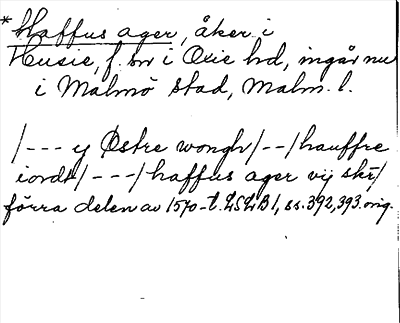 * Haffus ager, åker i
Husie, f. sn i Oxie hd, ingår nu
i Malmö stad, Malm. l.
/--- y Østre wongh/--/hauffre
iordt/---/haffus ager vij skr/
förra delen av 1570-t. LSLB 1, ss. 392, 393. orig.